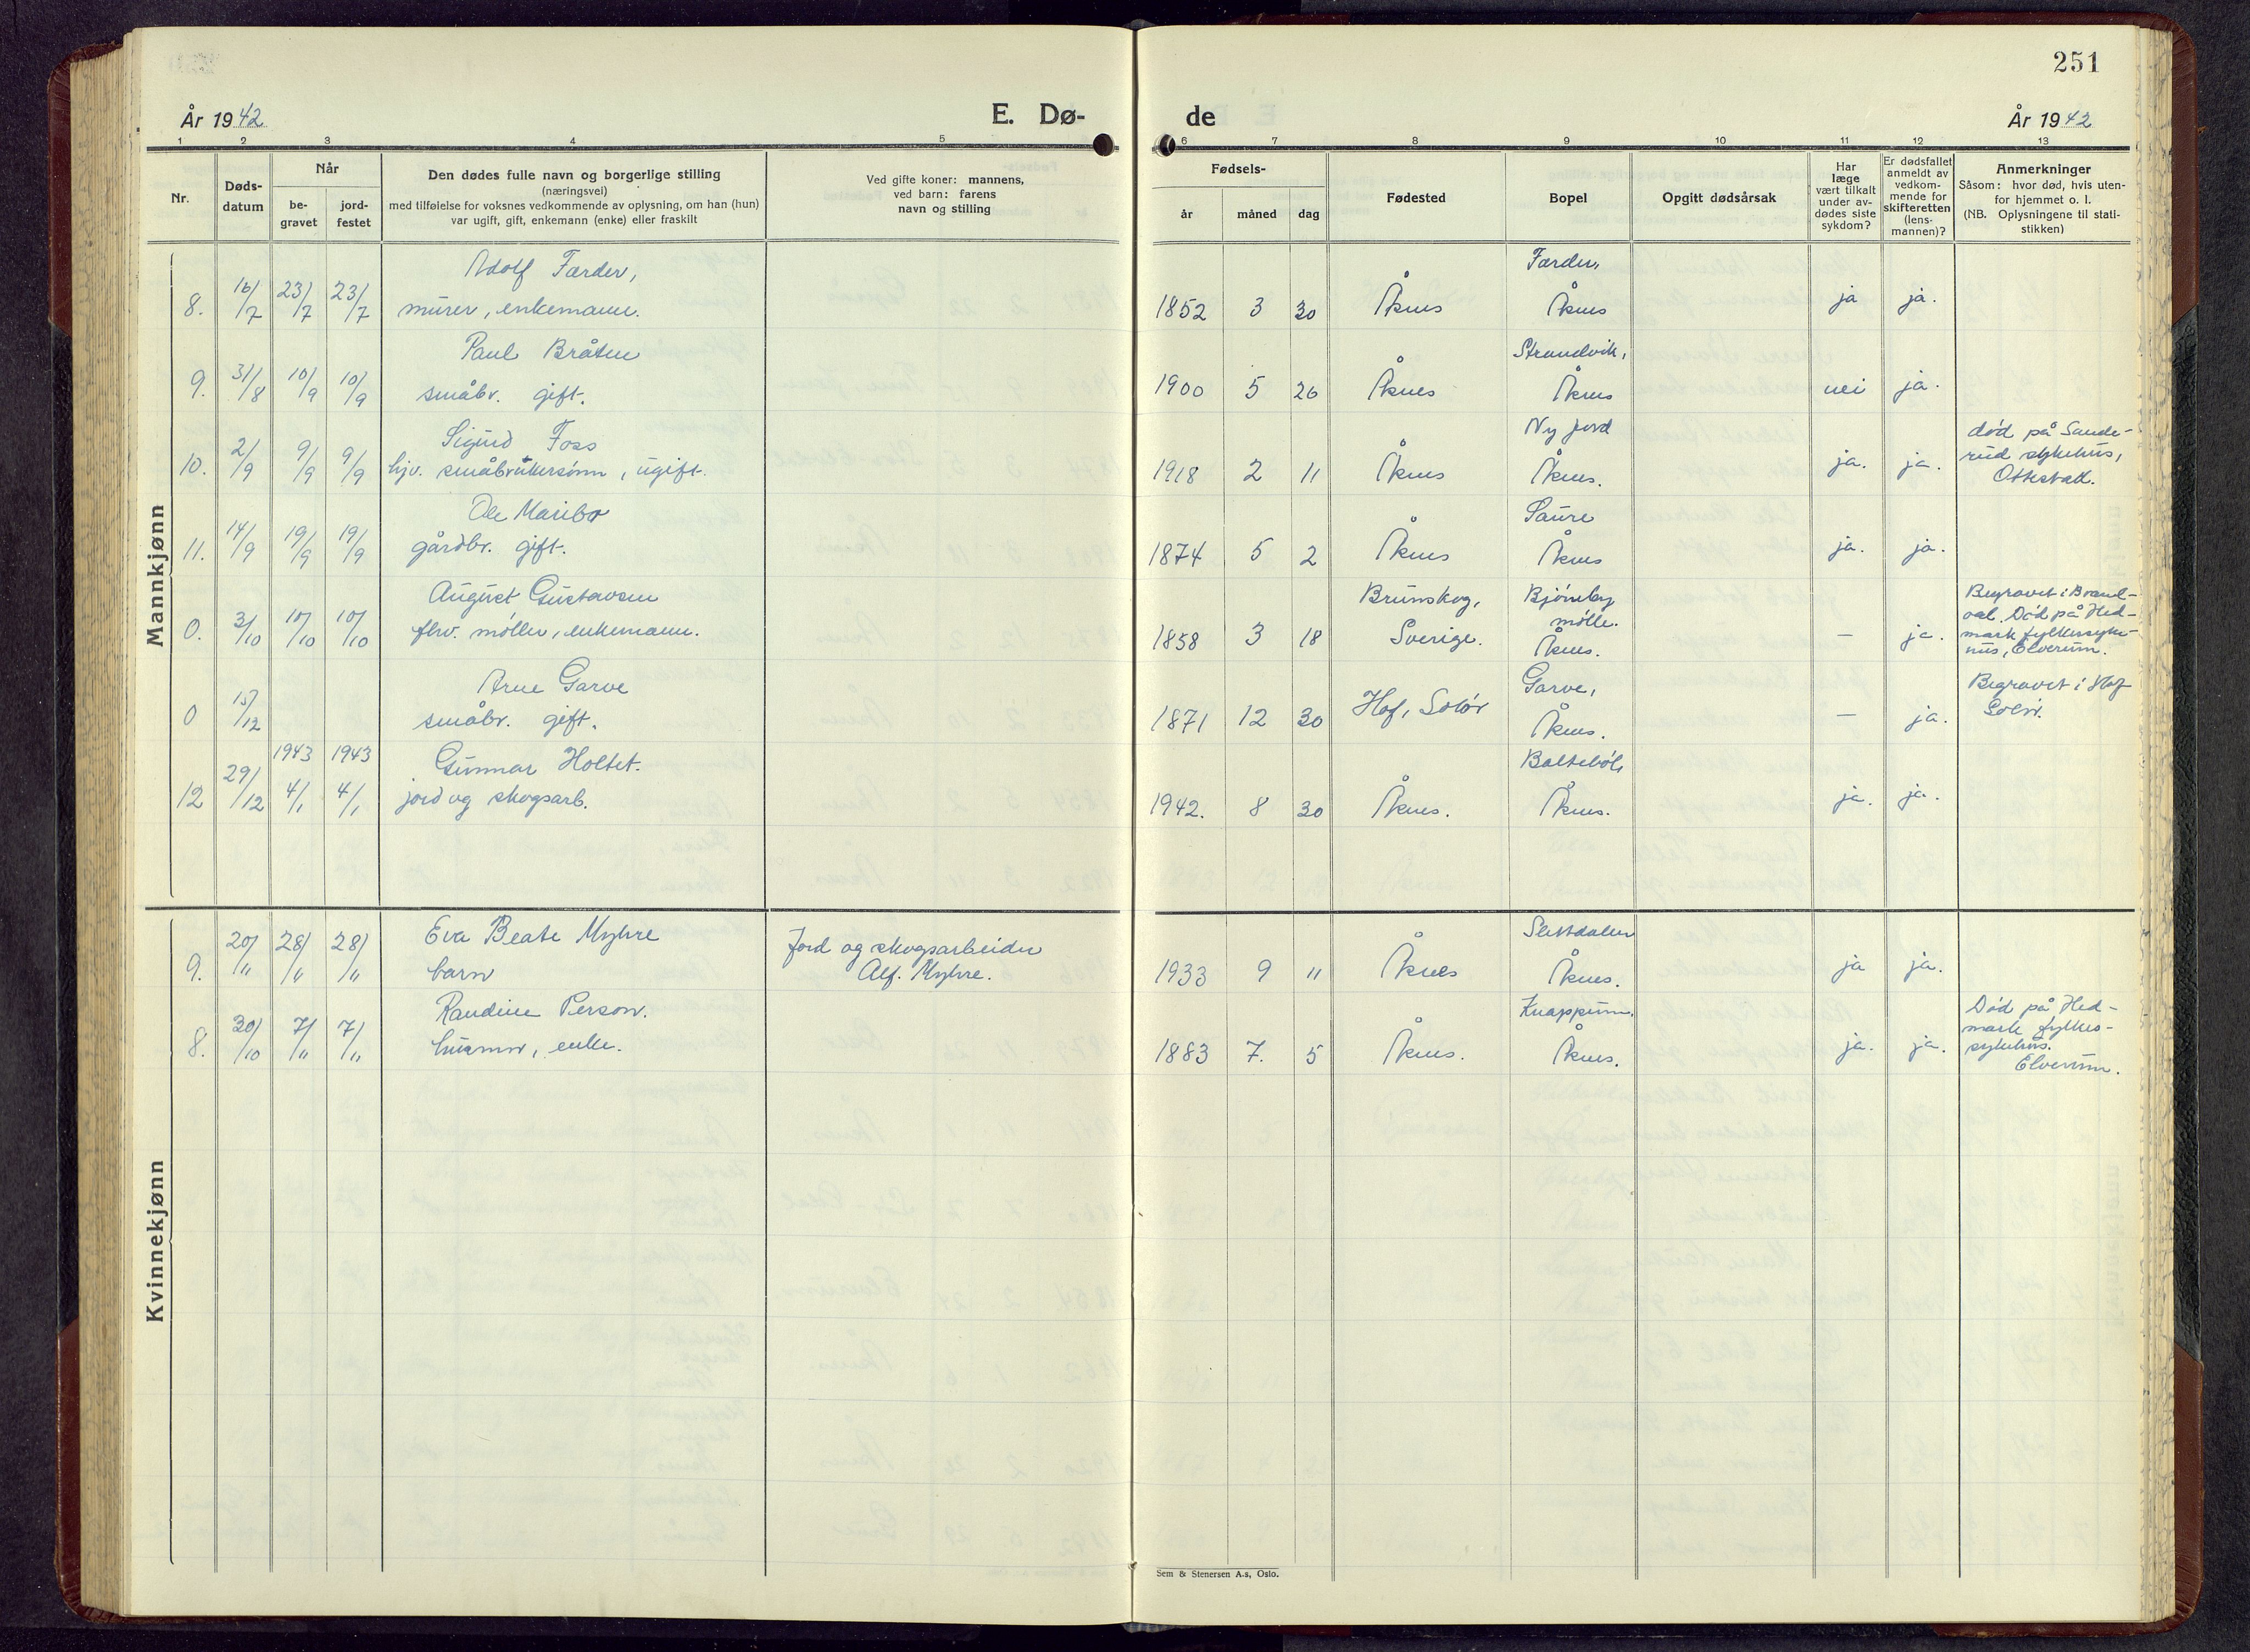 251
År 1942
E. Dø-
de
År 1942
1 2 3 4 5 6 7 8 9 10 11 12 13
Nr.
Døds-
datum
Når
be-
gravet
jord-
festet
Den dødes fulle navn og borgerlige stilling
(næringsvei)
med tilføielse for voksnes vedkommende av oplysning, om han (hun)
var ugift, gift, enkemann (enke) eller fraskilt
Ved gifte koner: mannens,
ved barn: farens
navn og stilling
Fødsels-
år
måned
dag
Fødested
Bopel
Opgitt dødsårsak
Har
læge
vært tilkalt
under av-
dødes siste
sykdom?
Er dødsfallet
anmeldt av
vedkom-
mende for
skifteretten
(lens-
mannen)?
Anmerkninger
Såsom: hvor død, hvis uten-
for hjemmet o. l.
(NB. Oplysningene til stati-
stikken)
Mannkjønn
Adolf Færder,
Færder,
8. 16/7 23/7 23/7 murer, enkemann. 1852 3 30 Åsnes Åsnes ja ja.
Paul Bråten
Strandvik,
9. 31/8 10/9 10/9 småbr. gift. 1900 5 26 Åsnes Åsnes nei ja.
Sigurd Foss
Ny jord
død på Sande-
rud sykehus,
Ottestad.
10. 2/9 9/9 9/9 hjv. småbrukersønn, ugift. 1918 2 11 Åsnes Åsnes. ja. ja.
Ole Maribo
Saure
11. 14/9 19/9 19/9 gårdbr. gift. 1874 5 2 Åsnes Åsnes ja. ja.
August Gustavsen
Brunskog,
Bjørneby
mølle.
Begravet i Brand-
val. Død på Hed-
mark fylkessyke-
hus, Elverum.
0. 3/10 10/10 10/10 fhv. møller, enkemann. 1858 3 18 Sverige. Åsnes. — ja.
Arne Garve
Garve,
Begravet i Hof
Solør.
0 15/12 småbr. gift. 1871 12 30 Hof, Solør Åsnes. — ja.
1943 1943 Gunnar Holtet.
Baltebøl,
12 29/12 4/1 4/1 jord og skogsarb. 1942. 8 30 Åsnes. Åsnes. ja. ja.
Kvinnekjønn
Eva Beate Myhre
Jord og skogsarbeider
Alf. Myhre.
Slettdalen
9. 20/11 28/11 28/11 barn 1933 9 11 Åsnes Åsnes. ja ja.
Randine Person.
Knappum,
Død på Hed-
mark fylkes-
sykehus.
Elverum.
8. 30/10 7/11 7/11 husmor, enke. 1883 7. 5 Åsnes. Åsnes. ja. ja.
Sem & Stenersen A.s, Oslo.